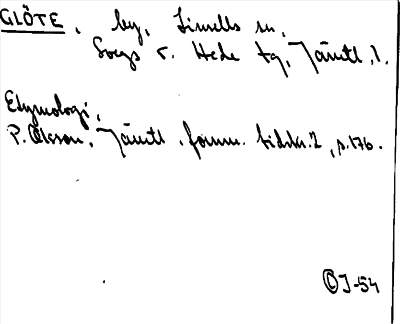 GLÖTE, by, Linsells sn,
Svegs o. Hede tg, Jämtl. l.
Etymologi,
P. Olsson, Jämtl. fornm. tidskr. 2, s. 176.
ÖJ-54